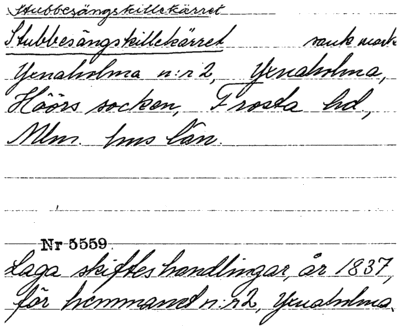 Stubbesängskillekärret
Stubbesängskillekärret sank mark
Yxnaholma n:r 2, Yxnaholma,
Höörs socken, Frosta hd,
Mlm. hus län.
Nr 5559.
Laga skifteshandlingar, år 1837,
för hemmanet n:r 2, Yxnaholma.